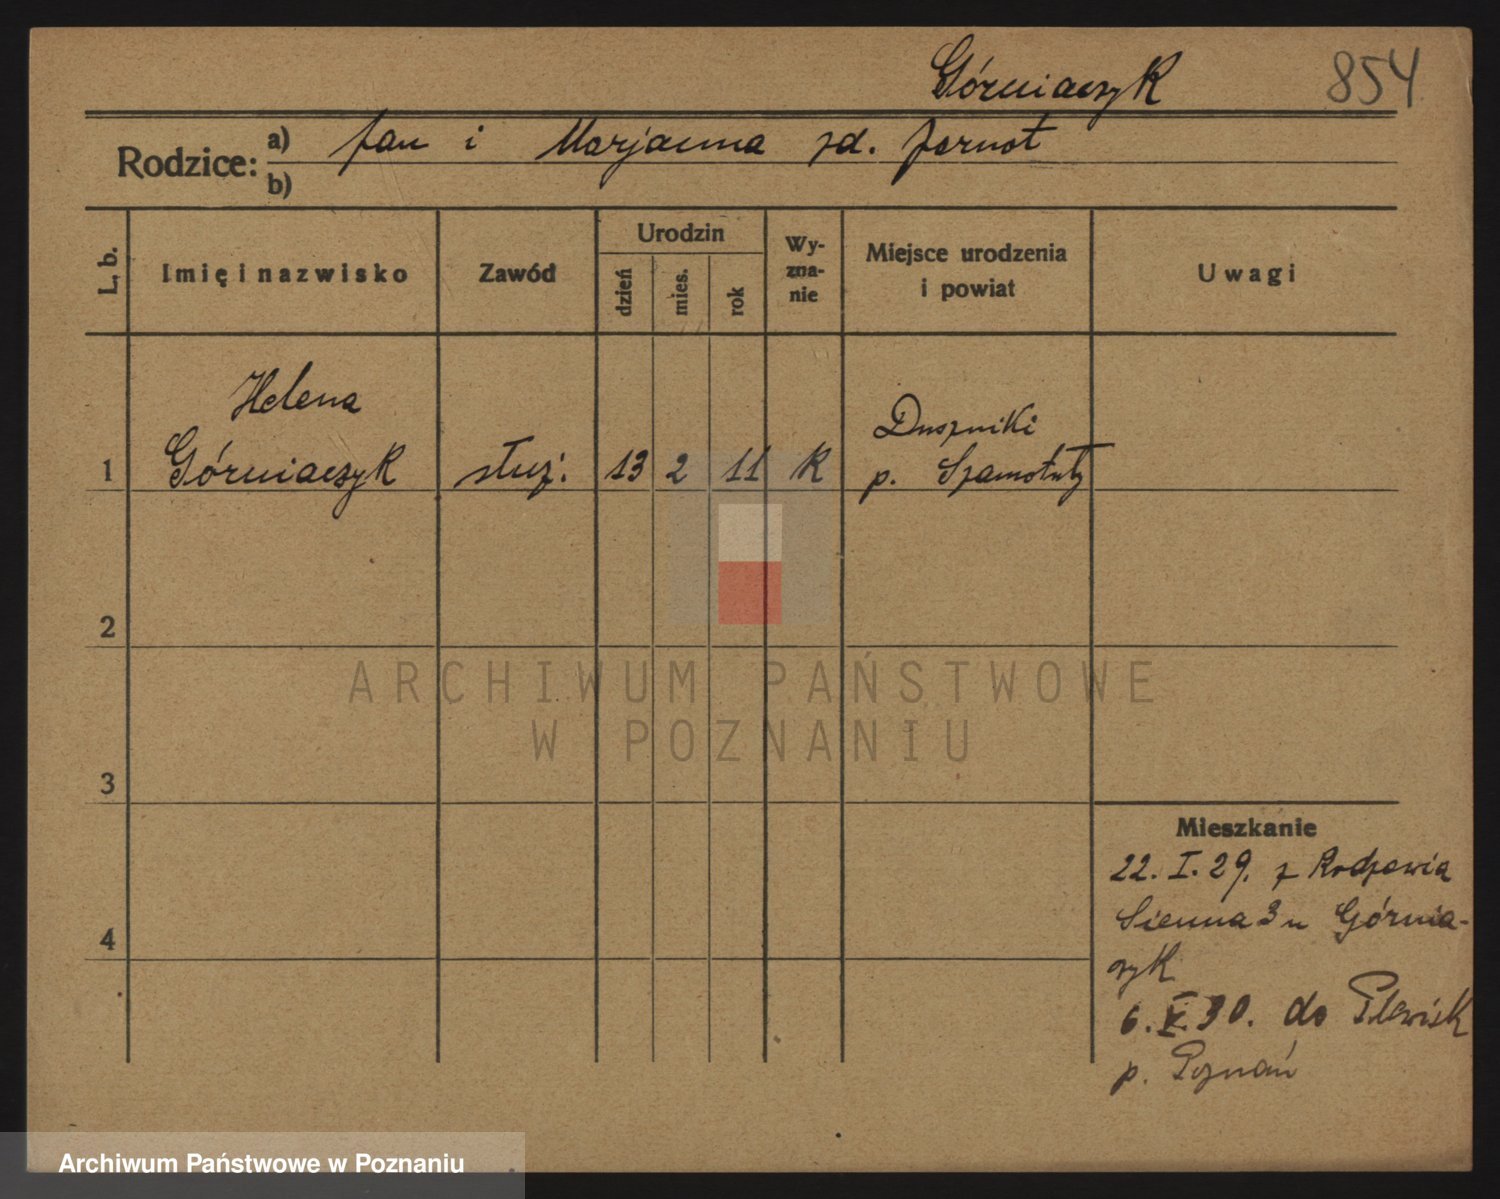 Górniaczyk 854
Rodzice: a) Jan i Marjanna zd. Jarnot
b)
L. b.
Imię i nazwisko
Zawód
Urodzin
dzień
mies.
rok
Wy-
zna-
nie
Miejsce urodzenia
i powiat
Uwagi
Helena
Duszniki
1 Górniaczyk służ. 13 2 11 K p. Szamotuły
2
3
4
Mieszkanie
22. I. 29. z
Sienna 3 u Górnia-
czyk
6. V. 30. do Plewisk
p. Poznań
ARCHIWUM PAŃSTWOWE
W POZNANIU
Archiwum Państwowe w Poznaniu